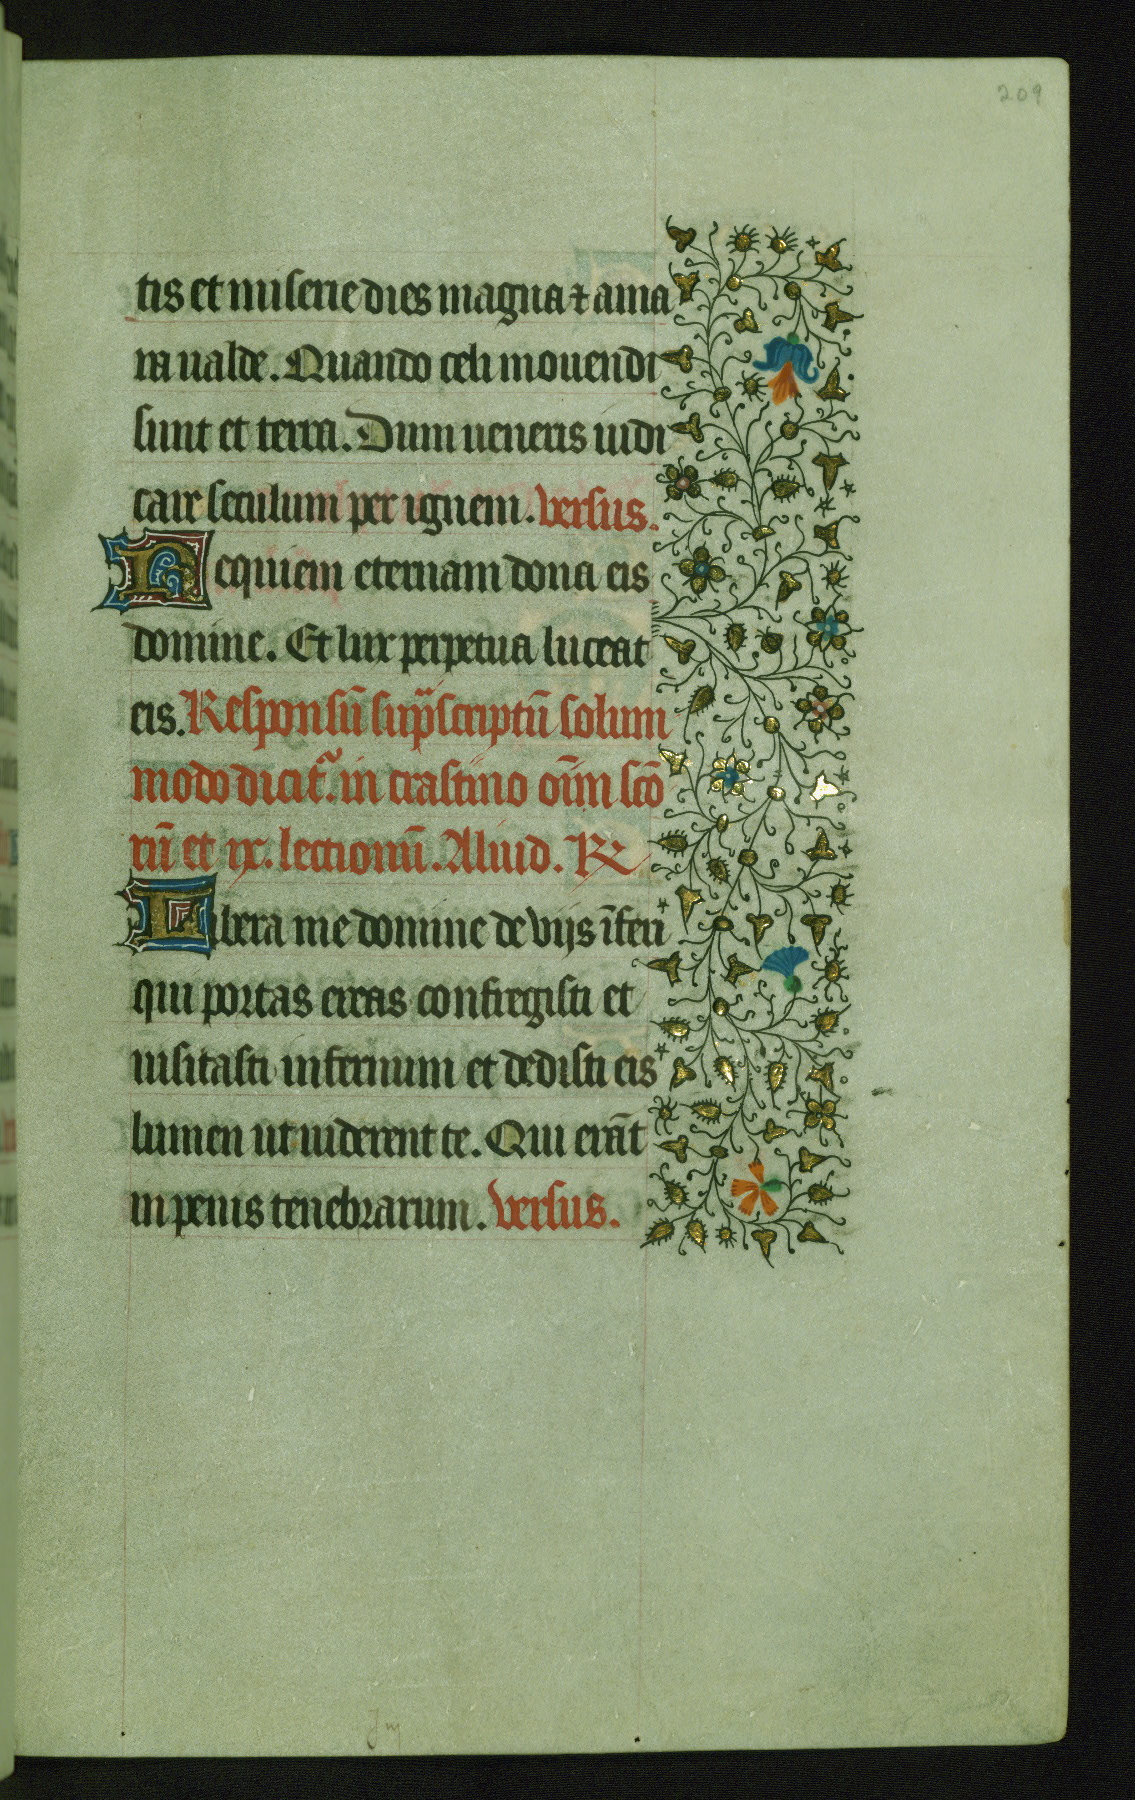 209
tis et miserie dies magna ⁊ ama
ra ualde. Quando celi mouendi
sunt et terra. Dum ueneris iudi
care seculum per ignem. versus.
Requiem eternam dona eis
domine. Et lux perpetua luceat
eis. Responsū sup̄scriptū solum
modo dicit᷑ in crastino oīm scō
rū et ix. lectionū. Aliud. ℟
Libera me domine de vijs īferi
qui portas ereas confregisti et
uisitasti infernum et dedisti eis
lumen ut uiderent te. Qui erāt
in penis tenebrarum. versus.